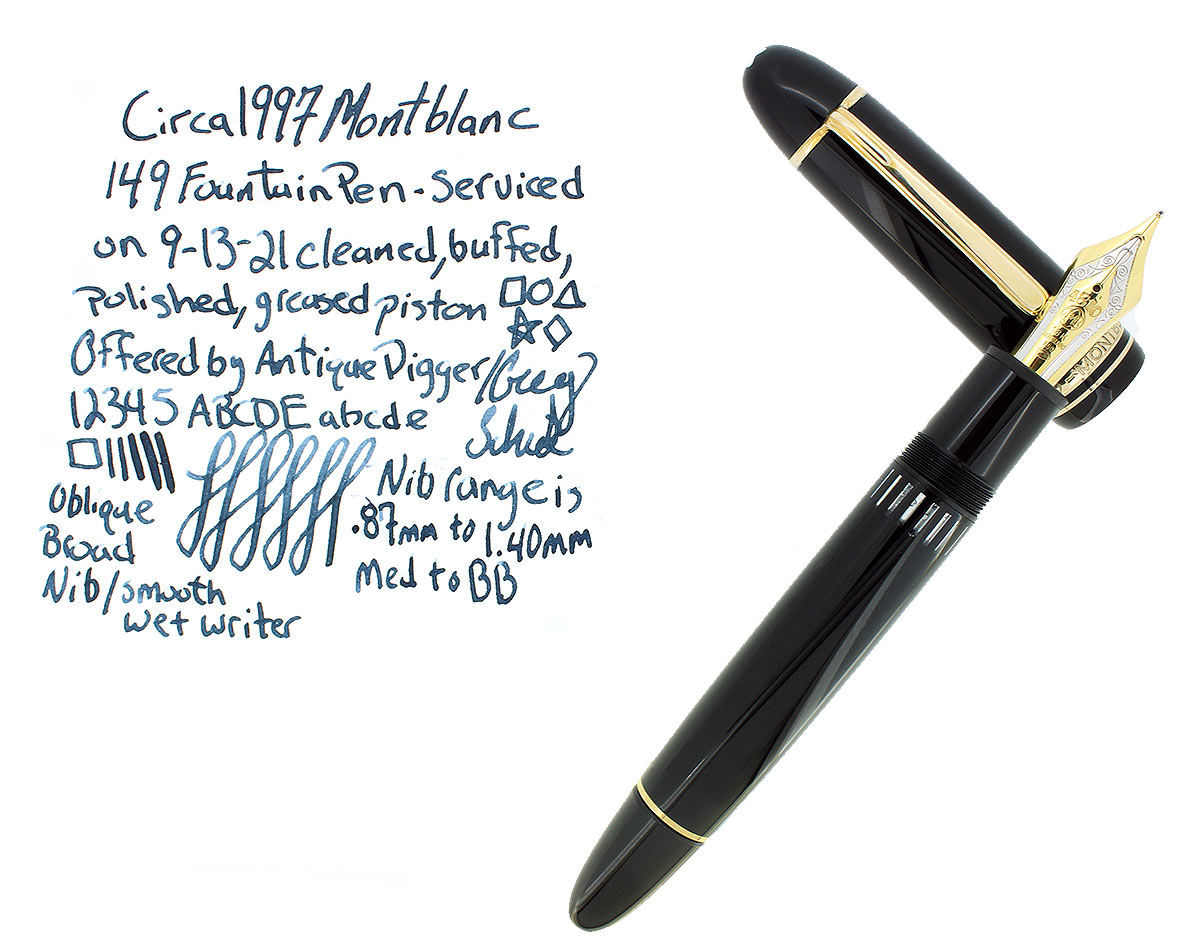 Circa 1997 Montblanc
149 Fountain Pen - Serviced
on 9-13-21 cleaned, buffed,
polished, greased piston
Offered by Antique Digger/Greg
12345 ABCDE abcde
Nib range is
.87mm to 1.40mm
Med to BB
Oblique
Broad
Nib/smooth
wet writer